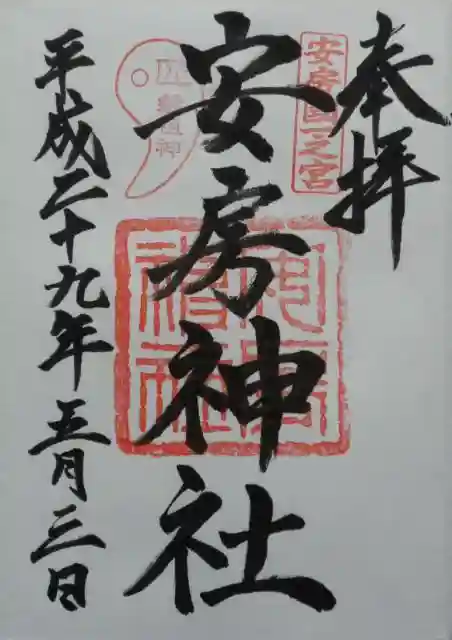 奉拝
安房國一之宮
安房神社
平成二十九年五月三日